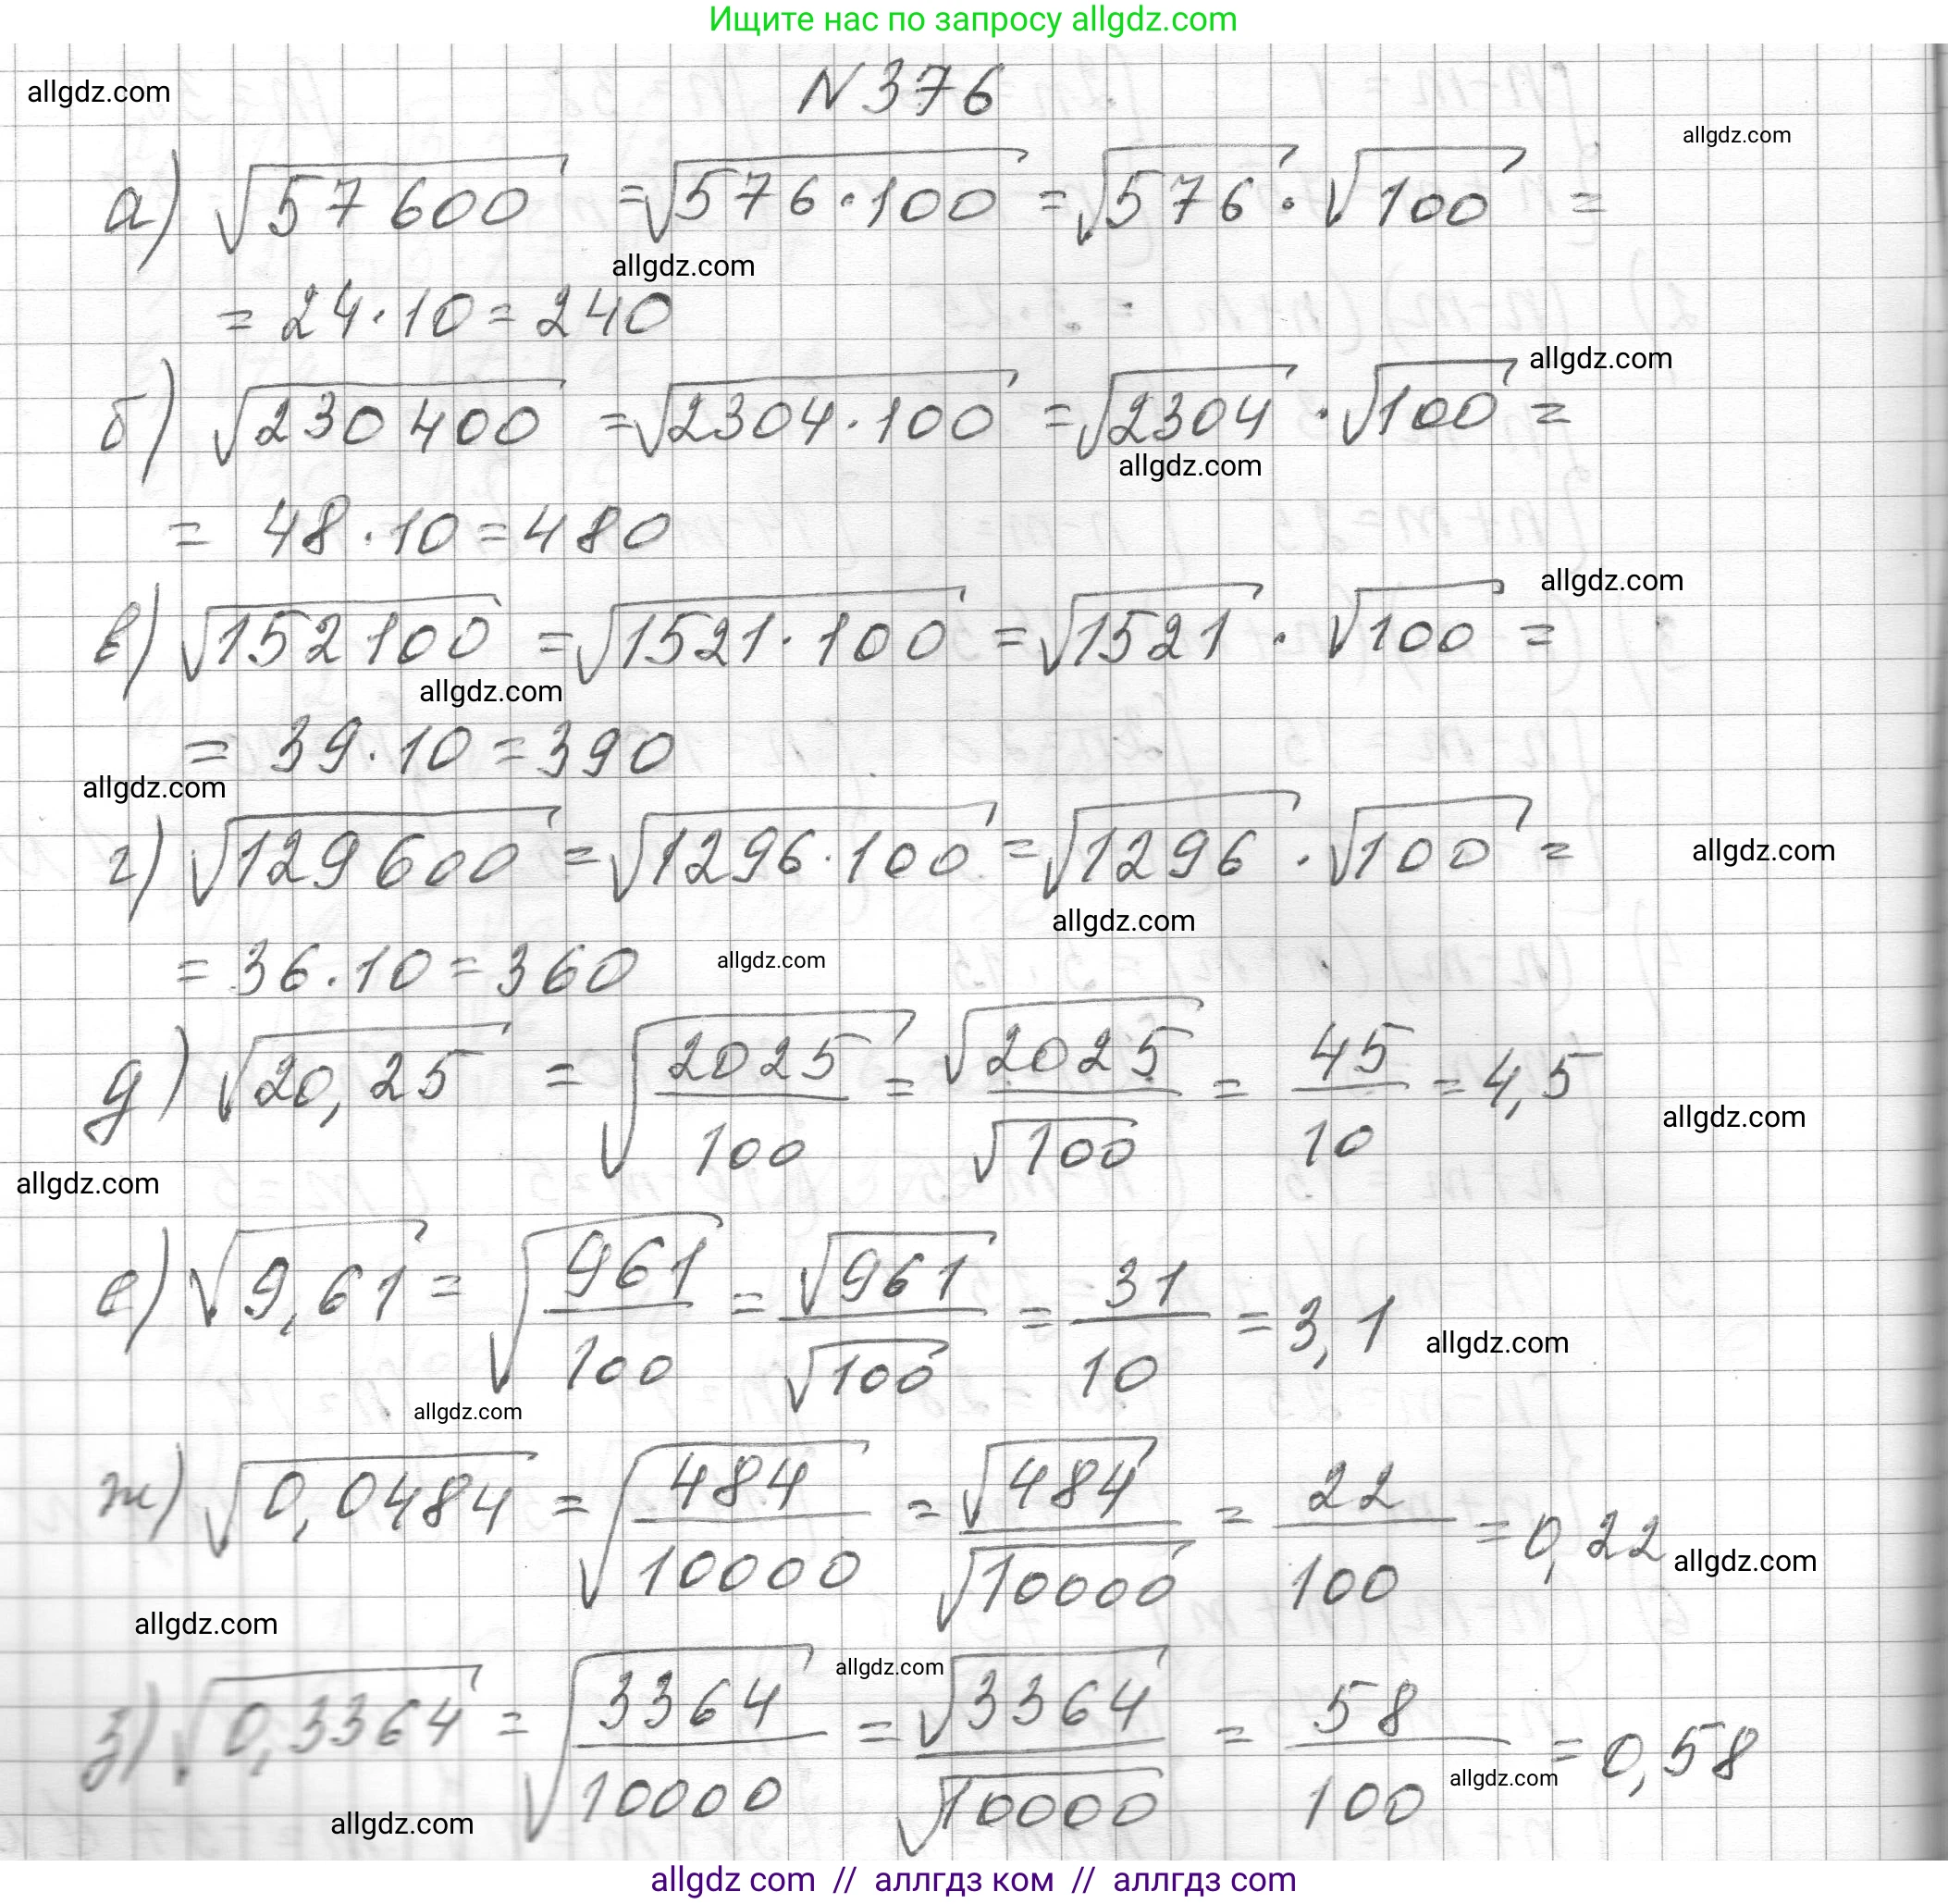 Ищите нас по запросу allgdz.com
allgdz.com
N 376
allgdz.com
а) √57600 = √576·100 = √576 · √100 =
allgdz.com
= 24·10 = 240
allgdz.com
б) √230400 = √2304·100 = √2304 · √100 =
allgdz.com
= 48·10 = 480
allgdz.com
в) √152100 = √1521·100 = √1521 · √100 =
allgdz.com
= 39·10 = 390
allgdz.com
г) √129600 = √1296·100 = √1296 · √100 =
allgdz.com
allgdz.com
= 36·10 = 360
allgdz.com
д) √20,25 = √(2025/100) = √2025/√100 = 45/10 = 4,5
allgdz.com
allgdz.com
е) √9,61 = √(961/100) = √961/√100 = 31/10 = 3,1
allgdz.com
allgdz.com
ж) √0,0484 = √(484/10000) = √484/√10000 = 22/100 = 0,22
allgdz.com
allgdz.com
allgdz.com
з) √0,3364 = √(3364/10000) = √3364/√10000 = 58/100 = 0,58
allgdz.com
allgdz.com
allgdz com // аллгдз ком // аллгдз com